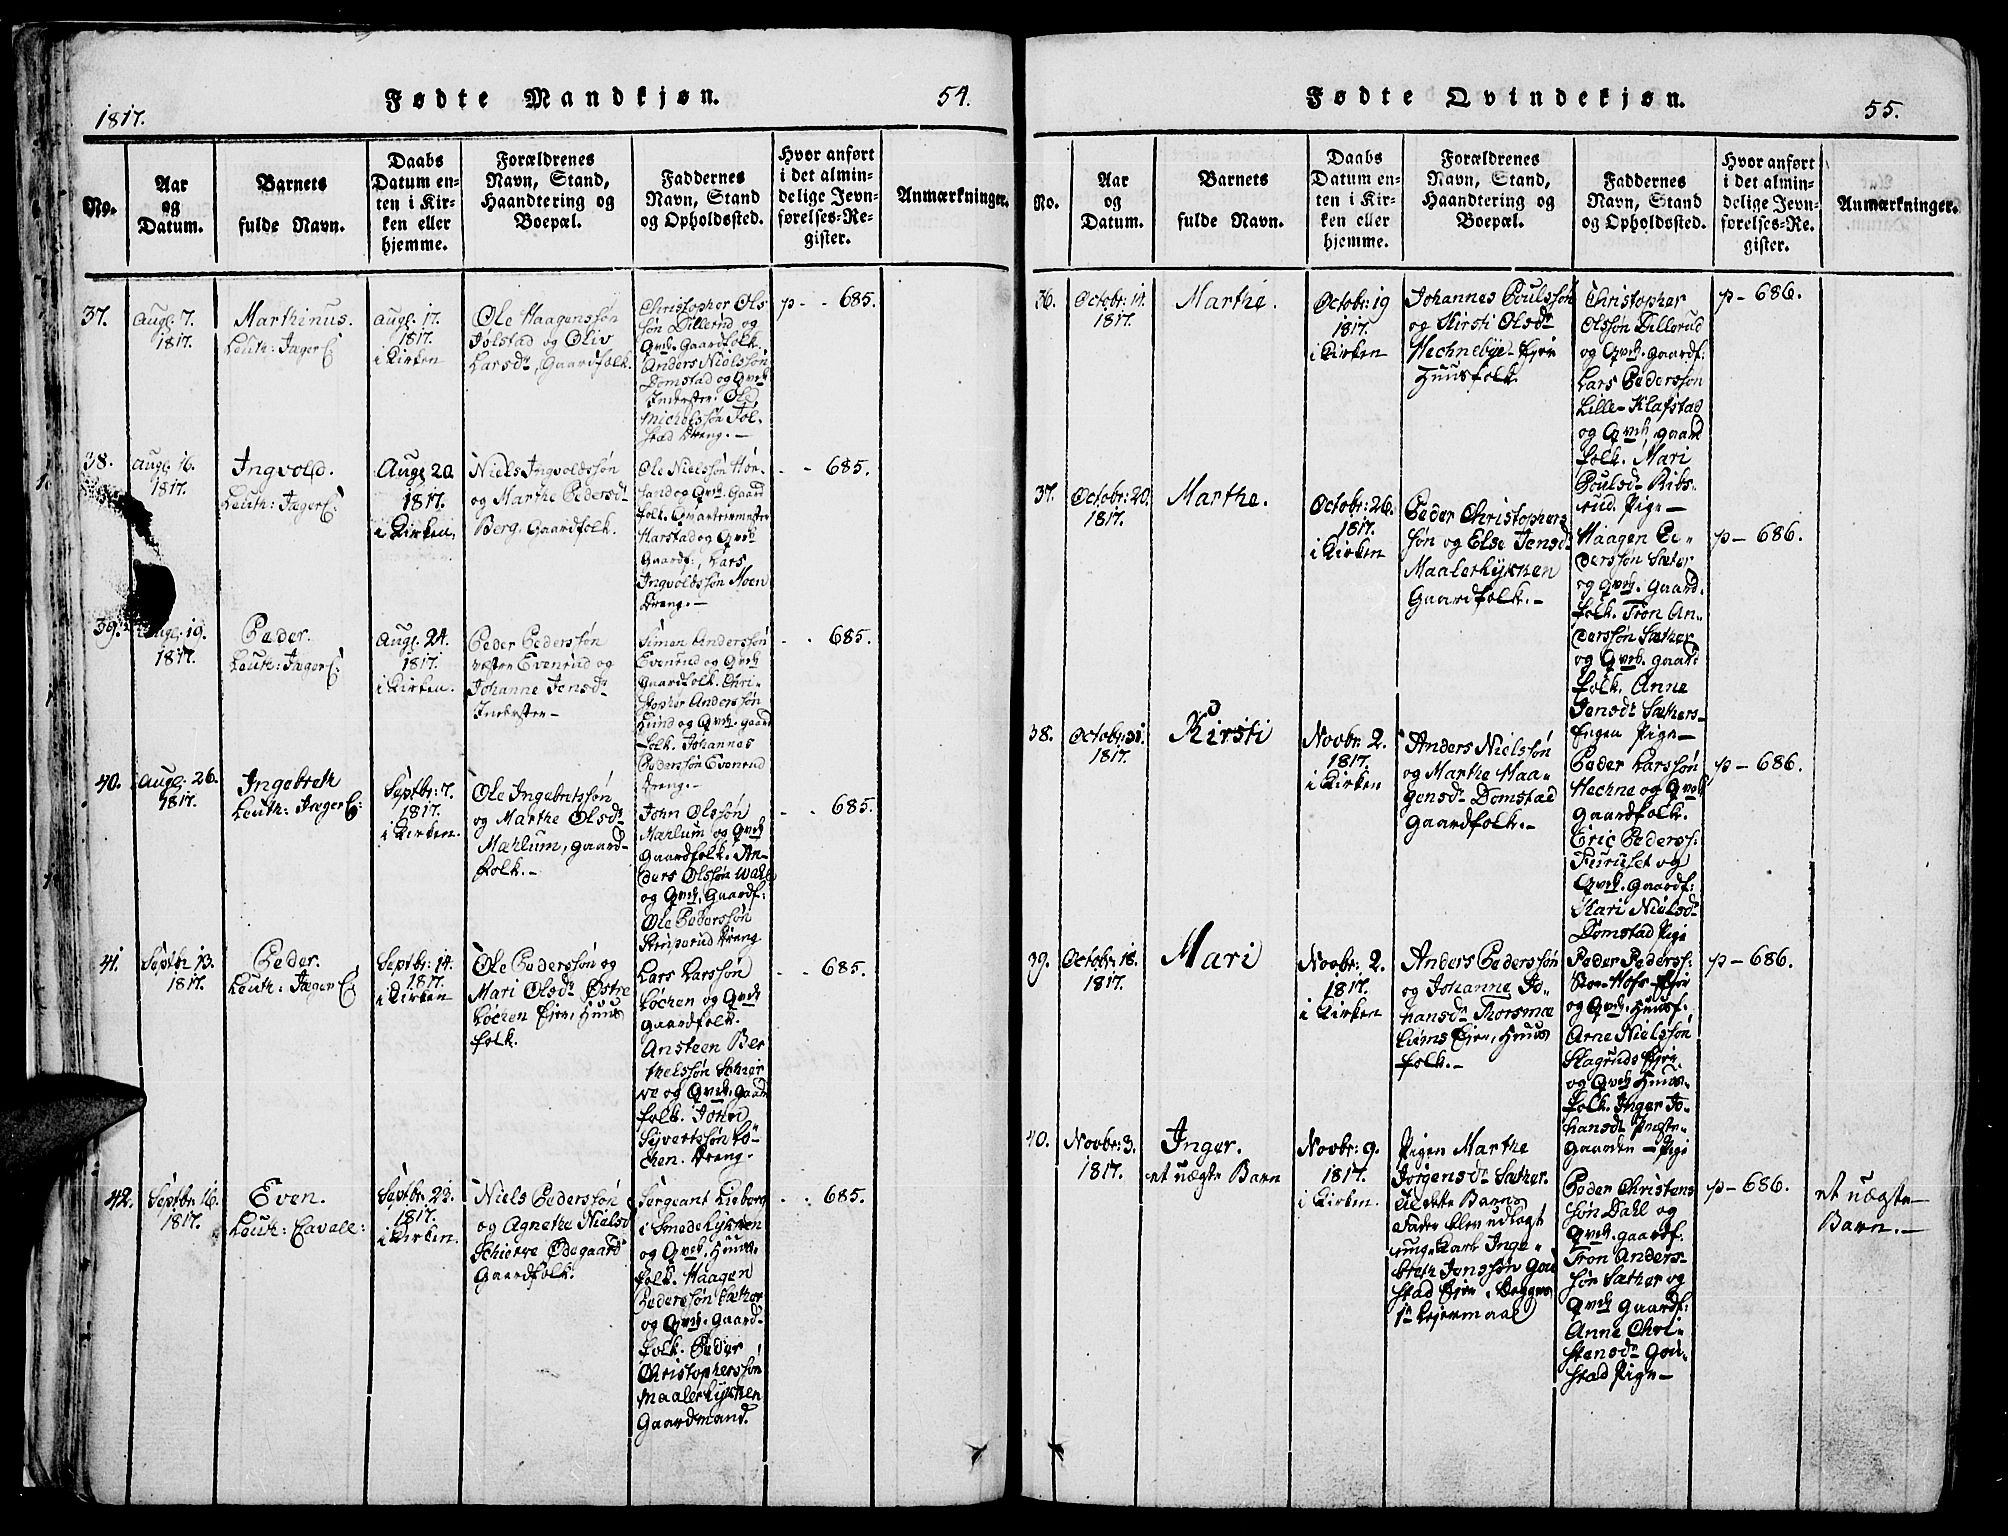 1817.
Fødte Mandkjøn.
54.
No.
Aar
og
Datum.
Barnets
fulde Navn.
Daabs
Datum en-
ten i Kir-
ken eller
hjemme.
Forældrenes
Navn, Stand,
Haandtering og
Boepæl.
Faddernes
Navn, Stand
og Opholdssted.
Hvor anført
i det almin-
delige Jevn-
førelses-Re-
gister.
Anmærkninger.
37.
Augl. 7.
1817.
Marthinus.
Leuth: Jæger C:
Augl. 17.
1817.
i Kirken
Ole Haagenssøn
Jolstad og Oliv
Larsdr, Gaardfolk.
Christopher Ols
søn Dillerud og
Qvk. Gaardfolk.
Anders Nielssøn
Domstad og Qvk
Inderster. Ole
Michelssøn Jol-
stad Dreng.-
p - - 685.
38.
Augl. 16.
1817.
Ingvold.
Leuth: Jæger C:
Augl. 20
1817.
i Kirken,
Niels Ingvoldssøn
og Marthe Pedersdr
Berg, Gaardfolk.
Ole Nielssøn Hør-
sand og Qvk. Gaard
folk. Qvarteermester
Harstad og Qvk
Gaardf:, Lars
Ingvoldssøn Moen
Dreng.-
- - 685.
39.
Augl. 19.
1817.
Peder.
Leuth: Jæger C:
Augl. 24.
1817.
i Kirken.
Peder Pederssøn
væster Evenrud og
Johanne Jensdr
Inderster-
Siman Anderssøn
Evenrud og Qvk
Gaardfolk. Chri-
stopher Anderssøn
Lund og Qvk. Gaard
folk. Johannes
Pederssøn Evenrud
Dreng.-
- - 685.
40.
Augl. 26.
1817.
Ingebreth
Leuth: Jæger C:
Septbr: 7.
1817.
i Kirken.
Ole Ingebretssøn
og Marthe Olsdr
Mæhlum, Gaard-
folk.-
John Olssøn
Mæhlum og Qvk
Gaardfolk. An-
ders Olssøn Wahl
og Qvk. Gaardf:
Ole Pederssøn
Dreng
- - 685.
41.
Septbr 13.
1817.
Peder.
Leuth: Jæger C:
Septbr: 14.
1817.
i Kirken
Ole Pederssøn og
Mari Olsdr Østre
Løchen Eier, Huus
folk.
Lars Larssøn
Løchen og Qvk
Gaardfolk.
Ansteen Ber
thelssøn Schier
ve og Qvk. Gaard
folk. John
Syvertssøn Lö-
chen. Dreng.-
- - 685.
42.
Septbr: 16.
1817.
Even.
Leuth: Cavall:
Septbr: 21.
1817.
i Kirken.
Niels Pederssøn
og Agnethe Nielsd
Schierve Ødegaard
Gaardfolk.
Sergeant Lieborg
i Smedelykken
og Qvk. Huus-
folk. Haagen
Pederssøn Sæther
og Qvk. Gaard-
folk. Peder
Christopherssøn
Maalerlykken
Gaardmand.
- - 685.
Fødte Qvindekjøn.
55.
No.
Aar
og
Datum.
Barnets
fulde Navn.
Daabs
Datum en-
ten i Kir-
ken eller
hjemme.
Forældrenes
Navn, Stand,
Haandtering og
Boepæl.
Faddernes
Navn, Stand
og Opholdssted.
Hvor anført
i det almin-
delige Jevn-
førelses-Re-
gister.
Anmærkninger.
36.
Octobr: 14.
1817.
Marthe.
Octobr: 19
1817.
i Kirken
Johannes Poulssøn
og Kirsti Olsdr
Hechnebye-Eye
Huusfolk.
Christopher
Olssøn Dillerud
og Qvk. Gaardf:
Lars Pederssøn
Lille-Klafstad
og Qvk, Gaard
folk. Mari
Poulsdr Ribs-
rud. Pige-
p - 686.
37.
Octobr: 20.
1817.
Marthe.
Octobr: 26.
1817.
i Kirken
Peder Christophers
søn og Else Jensd
Maalerlykken
Gaardfolk.-
Haagen Pe-
derssøn Sæter
og Qvk. Gaard-
folk. Tron An-
derssøn Sæther
og Qvk. Gaard
folk. Anne
Jensdr Sæthers-
Engen Pige-
p - 686.
38.
Octobr: 31.
1817.
Kirsti
Novbr: 2.
1817.
i Kirken
Anders Nielssøn
og Marthe Haa-
gensdr Domstad
Gaardfolk.-
Peder Larssøn
Hechne og Qvk
Gaardfolk.
Eric Pederss:
Furuset og
Qvk. Gaardf:
Kari Nielsdr
Domstad Pige
p - 686.
39.
Octobr: 18.
1817.
Mari
Novbr: 2.
1817.
i Kirken
Anders Pederssøn
og Johanne Jo-
hansdr Thorsmæ
liens Eyer, Huus
folk.-
Peder Pederss:
Stor-Hofs-Eye
og Qvk. Huusf.
Arne Nielssøn
Skagruds Eye
og Qvk Huus-
folk. Inger Jo-
hansdr Præste-
gaarden - Pige
p - 686.
40.
Novbr: 3.
1817.
Inger.
et uægte Barn
Novbr: 9.
1817.
i Kirken
Pigen Marthe
Jørgensdr Sæther.
til dette Barns
Fader blev udlagt
ung-Karl Inge-
breth Jonssøn Gou
stad Eye. Begges
1te Leiermaal
Peder Christens
søn Dahl og
Qvk. Gaardf.
Tron Anders-
søn Sæther og
Qvk Gaardf:
Anne Chri-
stensdr Gou-
stad Pige-
p - 686.
et uægte
Barn.-